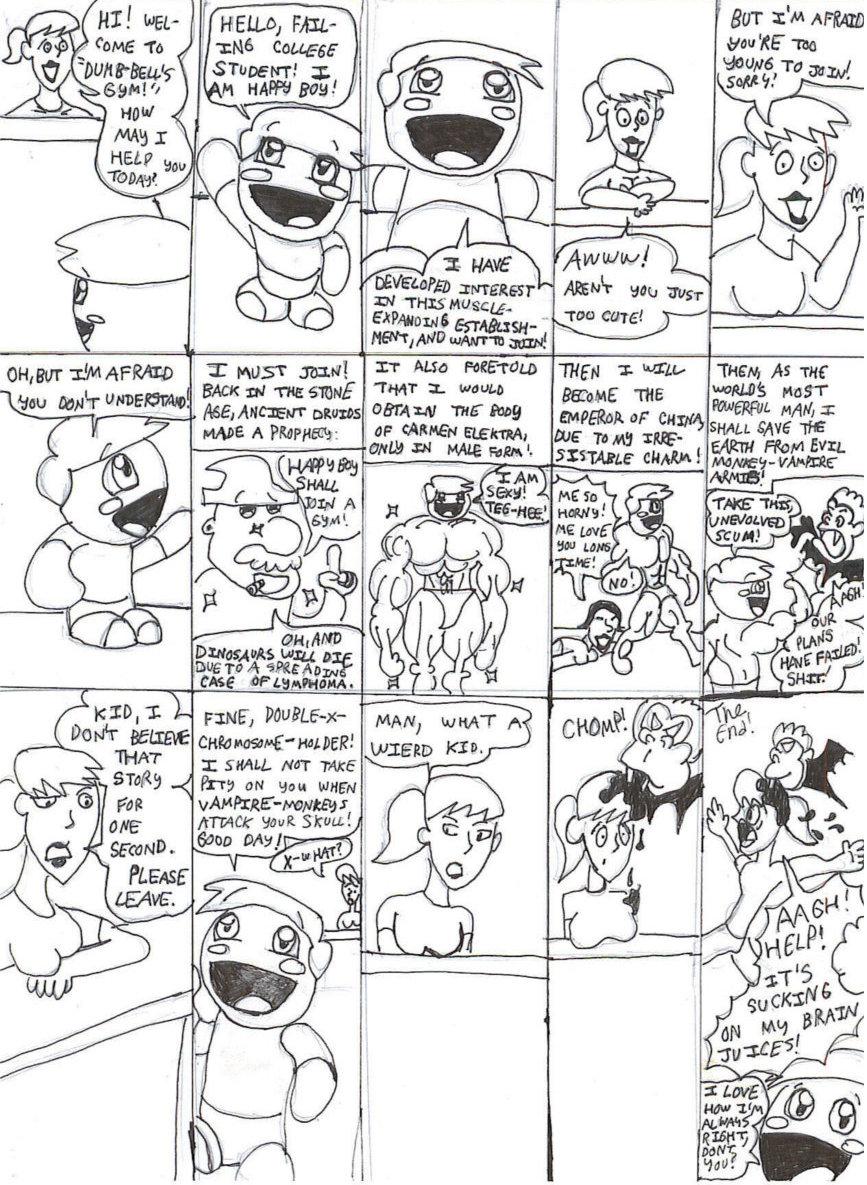 HI! WEL-
COME TO
"DUMB-BELL'S
GYM!"
HOW
MAY I
HELP YOU
TODAY?
HELLO, FAIL-
ING COLLEGE
STUDENT! I
AM HAPPY BOY!
I HAVE
DEVELOPED INTEREST
IN THIS MUSCLE-
EXPANDING ESTABLISH-
MENT, AND WANT TO JOIN!
AWWW!
AREN'T YOU JUST
TOO CUTE!
BUT I'M AFRAID
YOU'RE TOO
YOUNG TO JOIN!
SORRY!
OH, BUT I'M AFRAID
YOU DON'T UNDERSTAND!
I MUST JOIN!
BACK IN THE STONE
AGE, ANCIENT DRUIDS
MADE A PROPHECY:
HAPPY BOY
SHALL
JOIN A
GYM!
OH, AND
DINOSAURS WILL DIE
DUE TO A SPREADING
CASE OF LYMPHOMA.
IT ALSO FORETOLD
THAT I WOULD
OBTAIN THE BODY
OF CARMEN ELEKTRA,
ONLY IN MALE FORM!
I AM
SEXY!
TEE-HEE!
THEN I WILL
BECOME THE
EMPEROR OF CHINA
DUE TO MY IRRE-
SISTABLE CHARM!
ME SO
HORNY!
ME LOVE
YOU LONG
TIME!
NO!
THEN, AS THE
WORLD'S MOST
POWERFUL MAN, I
SHALL SAVE THE
EARTH FROM EVIL
MONKEY-VAMPIRE
ARMIES!
TAKE THIS,
UNEVOLVED
SCUM!
AAGH!
OUR
PLANS
HAVE FAILED!
SHIT!
KID, I
DON'T BELIEVE
THAT
STORY
FOR
ONE
SECOND.
PLEASE
LEAVE.
FINE, DOUBLE-X-
CHROMOSOME-HOLDER!
I SHALL NOT TAKE
PITY ON YOU WHEN
VAMPIRE-MONKEYS
ATTACK YOUR SKULL!
GOOD DAY!
X-WHAT?
MAN, WHAT A
WIERD KID.
CHOMP!
The
End!
AAGH!
HELP!
IT'S
SUCKING
ON MY BRAIN
JUICES!
I LOVE
HOW I'M
ALWAYS
RIGHT,
DON'T
YOU?